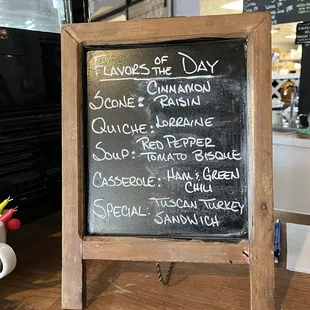 Flavors of the Day
Scone: Cinnamon
Raisin
Quiche: Lorraine
Soup: Red Pepper
Tomato Bisque
Casserole: Ham & Green
Chili
Special: Tuscan Turkey
Sandwich